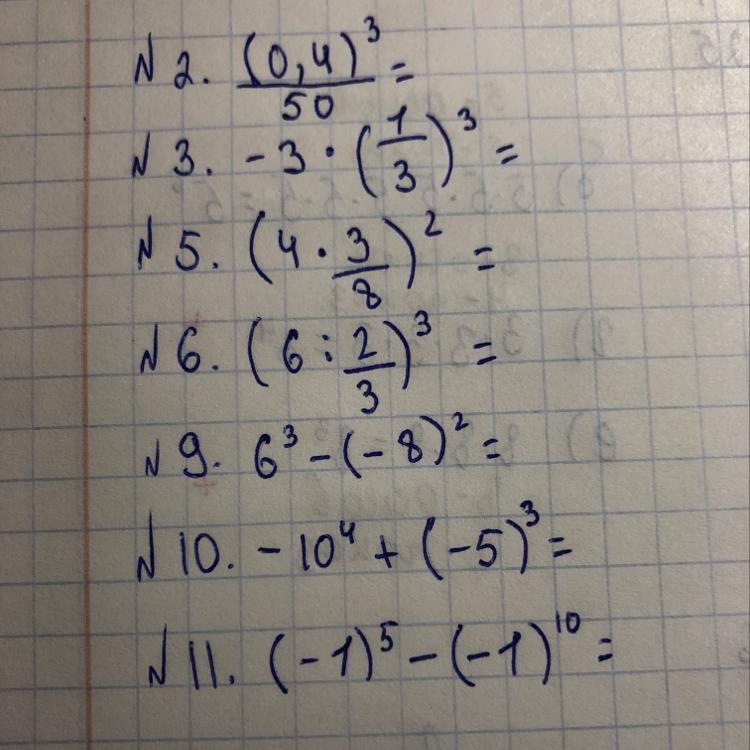 № 2. (0,4)³/50 =
№ 3. -3 · (1/3)³ =
№ 5. (4 · 3/8)² =
№ 6. (6 : 2/3)³ =
№ 9. 6³ - (-8)² =
№ 10. -10⁴ + (-5)³ =
№ 11. (-1)⁵ - (-1)¹⁰ =